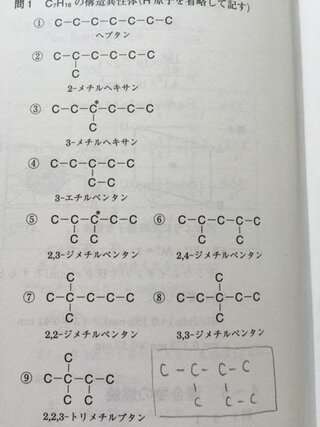 問1 C₇H₁₆の構造異性体(H原子を省略して記す)
① C-C-C-C-C-C-C
ヘプタン
② C-C-C-C-C-C
C
2-メチルヘキサン
③ C-C-C*-C-C-C
C
3-メチルヘキサン
④ C-C-C-C-C
C-C
3-エチルペンタン
⑤ C-C-C*-C-C
C C
2,3-ジメチルペンタン
⑥ C-C-C-C-C
C C
2,4-ジメチルペンタン
C
⑦ C-C-C-C-C
C
2,2-ジメチルペンタン
C
⑧ C-C-C-C-C
C
3,3-ジメチルペンタン
C
⑨ C-C-C-C
C C
2,2,3-トリメチルブタン
C-C-C-C
C C-C